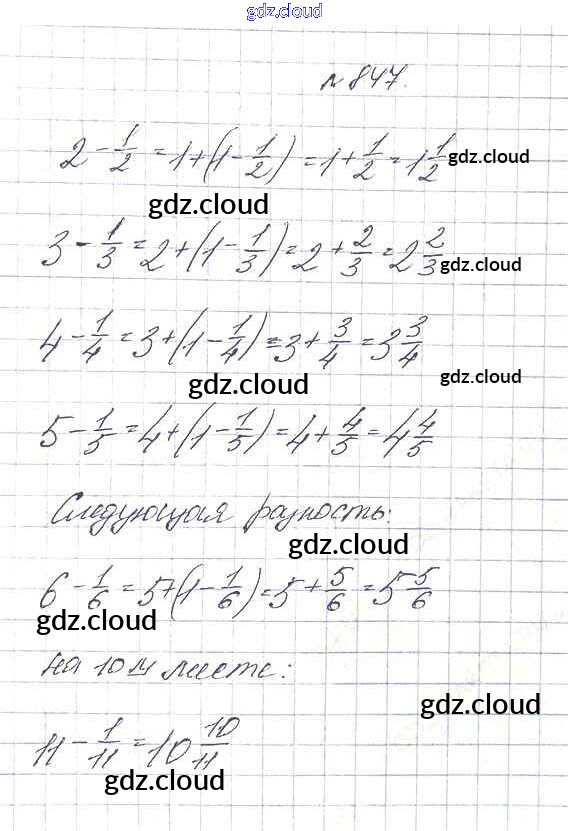 gdz.cloud
№ 847.
2 - 1/2 = 1 + (1 - 1/2) = 1 + 1/2 = 1 1/2 gdz.cloud
gdz.cloud
3 - 1/3 = 2 + (1 - 1/3) = 2 + 2/3 = 2 2/3 gdz.cloud
4 - 1/4 = 3 + (1 - 1/4) = 3 + 3/4 = 3 3/4 gdz.cloud
gdz.cloud
5 - 1/5 = 4 + (1 - 1/5) = 4 + 4/5 = 4 4/5
Следующая разность:
gdz.cloud
6 - 1/6 = 5 + (1 - 1/6) = 5 + 5/6 = 5 5/6
gdz.cloud
На 10м месте:
gdz.cloud
11 - 1/11 = 10 10/11
gdz.cloud